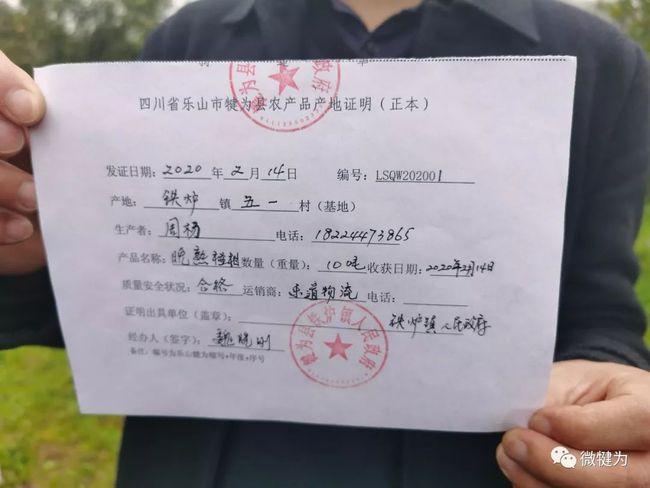 四川省乐山市犍为县农产品产地证明（正本）
发证日期：2020 年 2 月 14 日 编号：LSQW202001
产地：铁炉 镇 五一 村（基地）
生产者：周杨 电话：18224473865
产品名称：晚熟柑桔 数量（重量）：10吨 收获日期：2020年2月14日
质量安全状况：合格 运销商：乐道物流 电话：
证明出具单位（盖章）：铁炉镇人民政府
经办人（签字）：魏晓刚
备注：编号为乐山犍为缩写+年份+序号
犍为县铁炉镇人民政府
微犍为